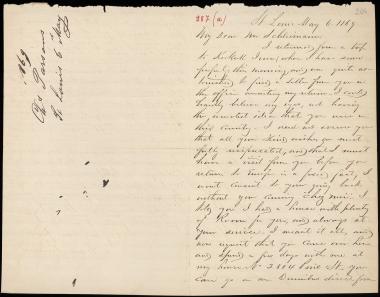 1869
Chs Parsons
St Louis 6 May
287 (a)
St Louis May 6. 1869
My Dear Mr Schliemann
I returned from a trip
to
this morning, and was quite as-
tonished to find a letter from you at
the office awaiting my return. I could
hardly believe my eyes, not having
the remotest idea that you were in
this Country. I need not assure you
that all your kind wishes are most
fully reciprocated, and that I must
have a visit from you before you
return to Europe in a fixed fact, I
wont consent to your going back
without you coming
told you I had a house with plenty
of Room for you, and always at
your service. I meant it all, and
now request that you come over here
and spend a few days with me at
my house No 2804 Pine St. you
can go in an Omnibus direct from